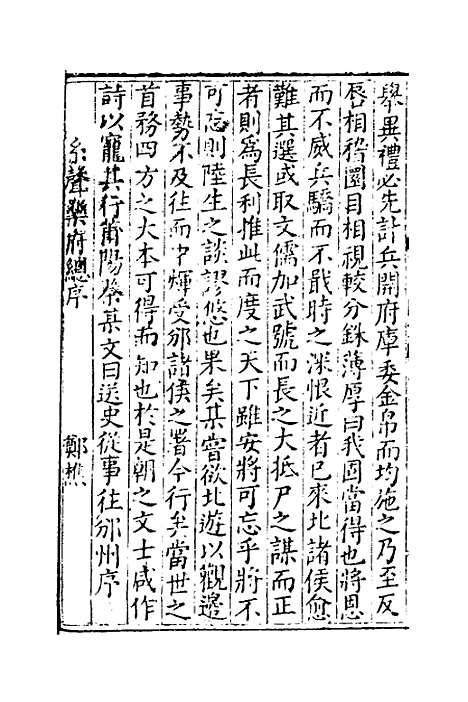 舉異禮必先計兵開府庫委金帛而均施之乃至反
唇相稽圜目相視較分銖薄厚曰我固當得也將恩
而不威兵驕而不戢時之深恨近者已來北諸侯愈
難其選或取文儒加武號而長之大抵尸之謀而正
者則為長利惟此而度之天下雖安將可忘乎將不
可忘則陸生之談謬悠也果矣某嘗欲北遊以觀邊
事勢不及往而中煇受邠諸侯之署今行矣當世之
首務四方之大本可得而知也於是朝之文士咸作
詩以寵其行莆陽蔡某文曰送史從事往邠州序
系聲樂府總序　鄭樵